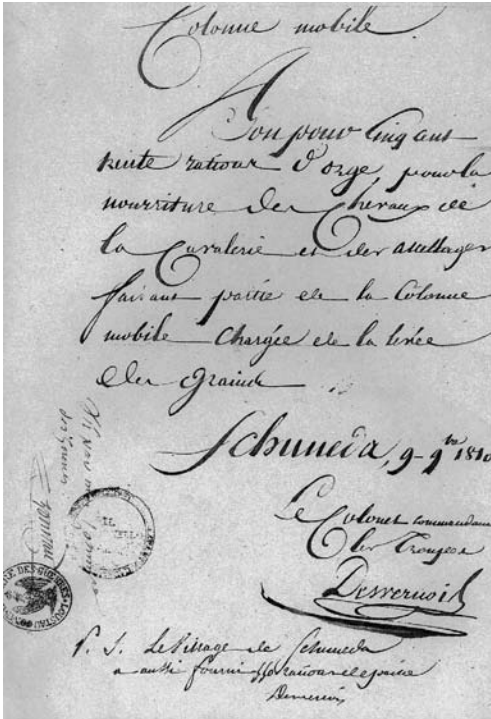 Colonne mobile.
Bon pour Cinq cent
trente rations d'orge, pour la
nourriture des Chevaux de
la Cavalerie et des attellages
faisant partie de la Colonne
mobile Chargée de la levée
des grains
Schuneda, 9 9bre 1810
Le Colonel commandant
les Troupes
Desvernois
P. S. Le Village de Schuneda
a aussi fourni rations de paille
Desvernois